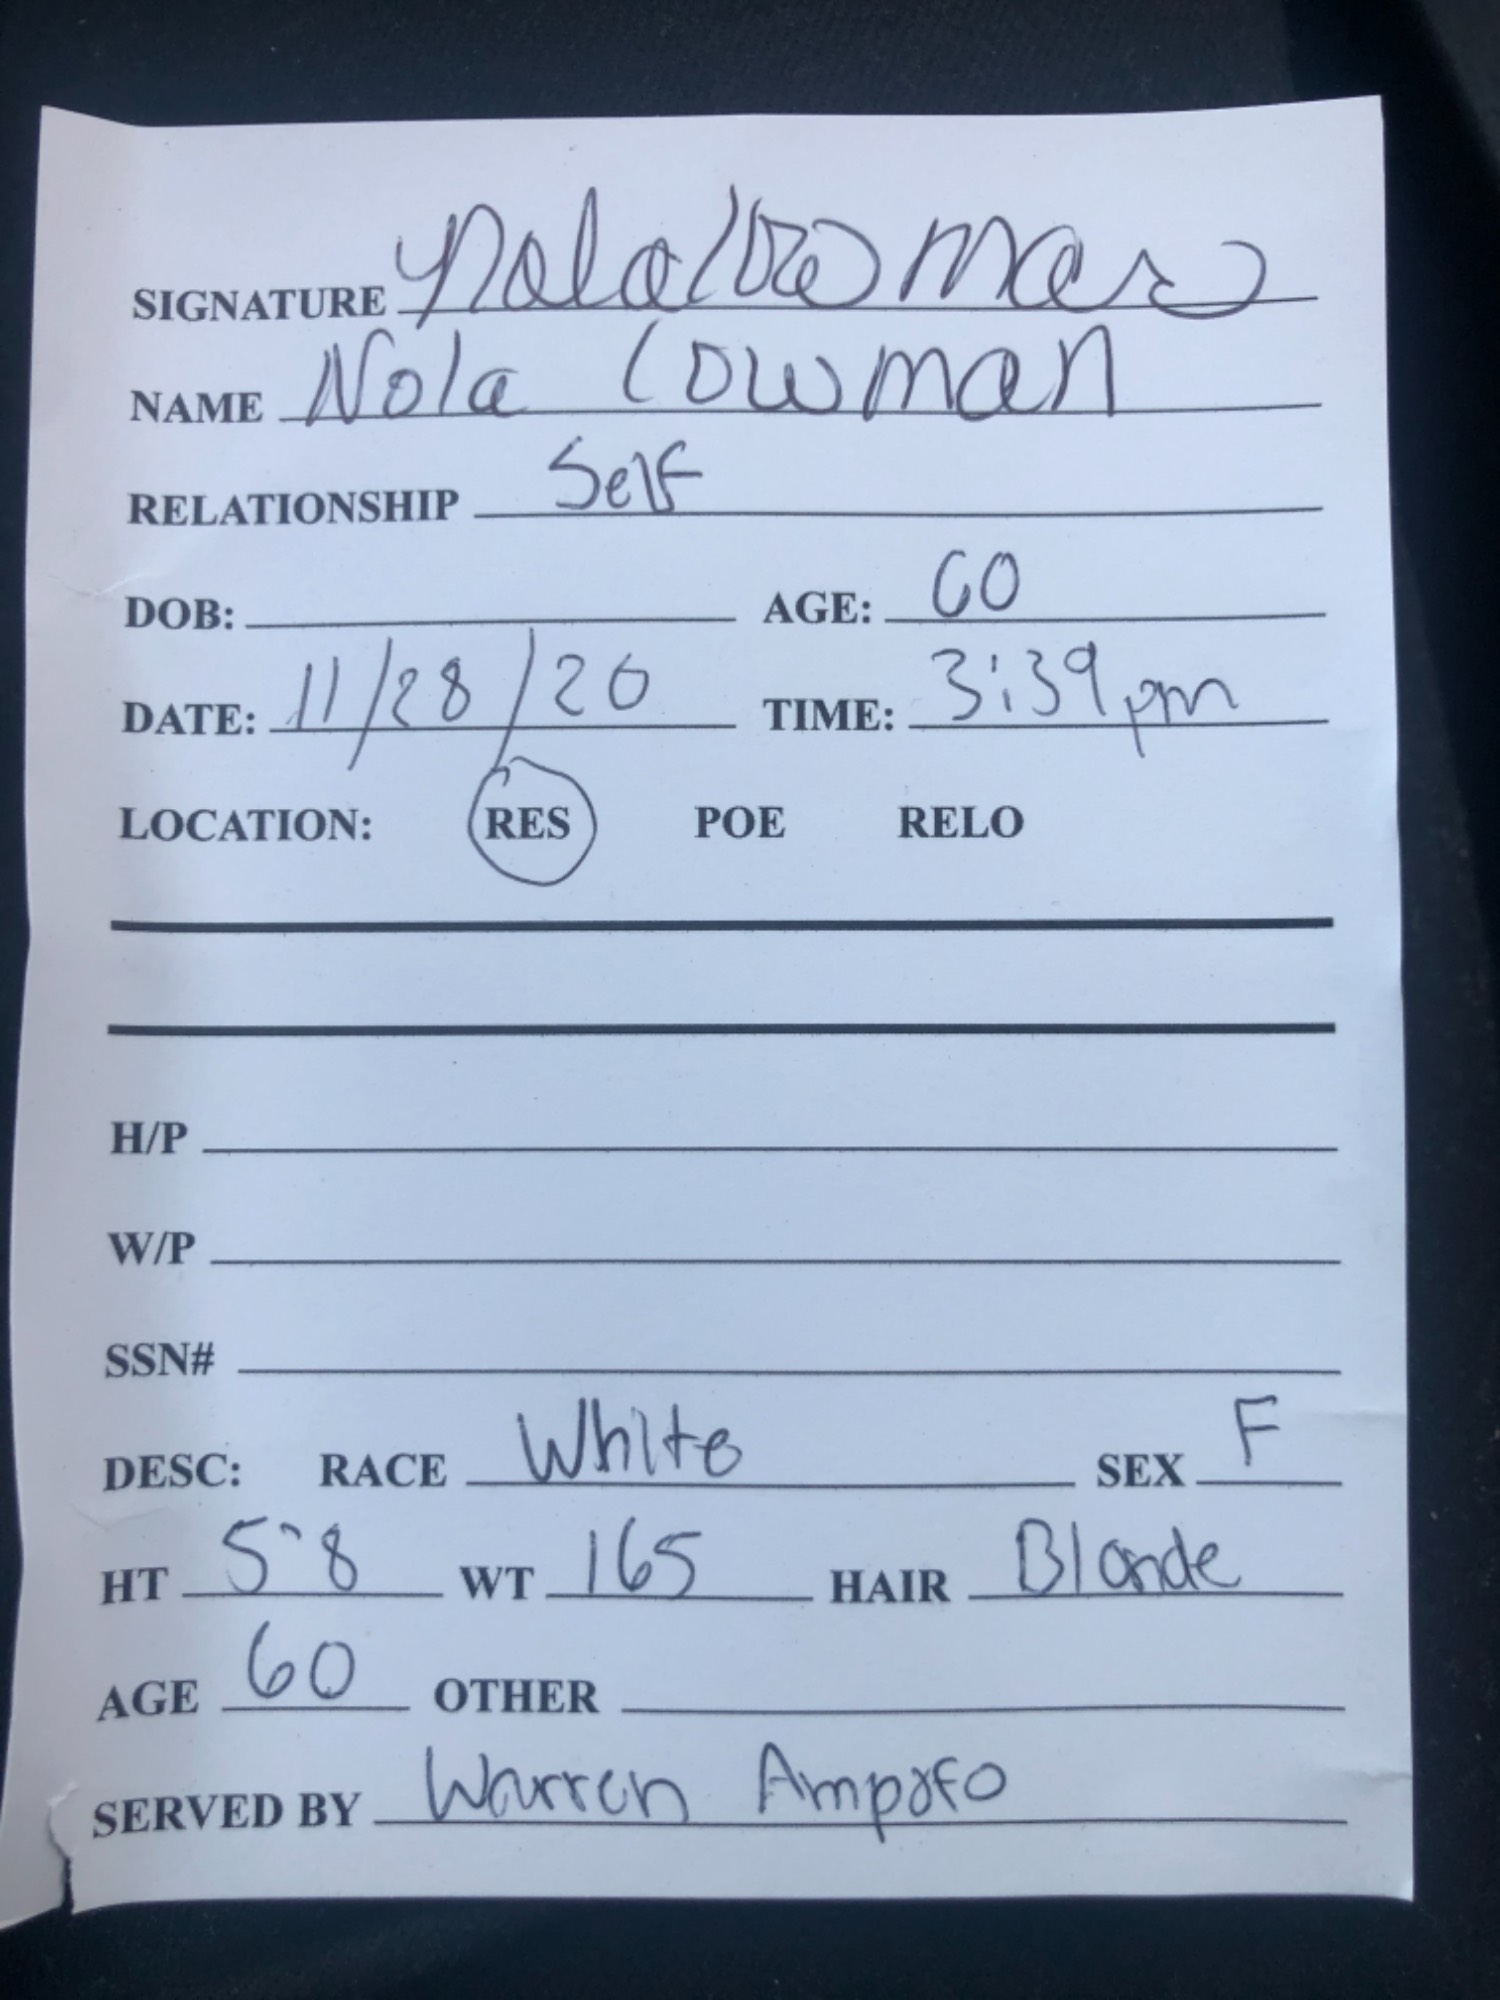 SIGNATURE Nola Cowman
NAME Nola Cowman
RELATIONSHIP Self
DOB: AGE: 60
DATE: 11/28/20 TIME: 3:39pm
LOCATION: RES POE RELO
H/P
W/P
SSN#
DESC: RACE White SEX F
HT 5'8 WT 165 HAIR Blonde
AGE 60 OTHER
SERVED BY Warren Ampofo